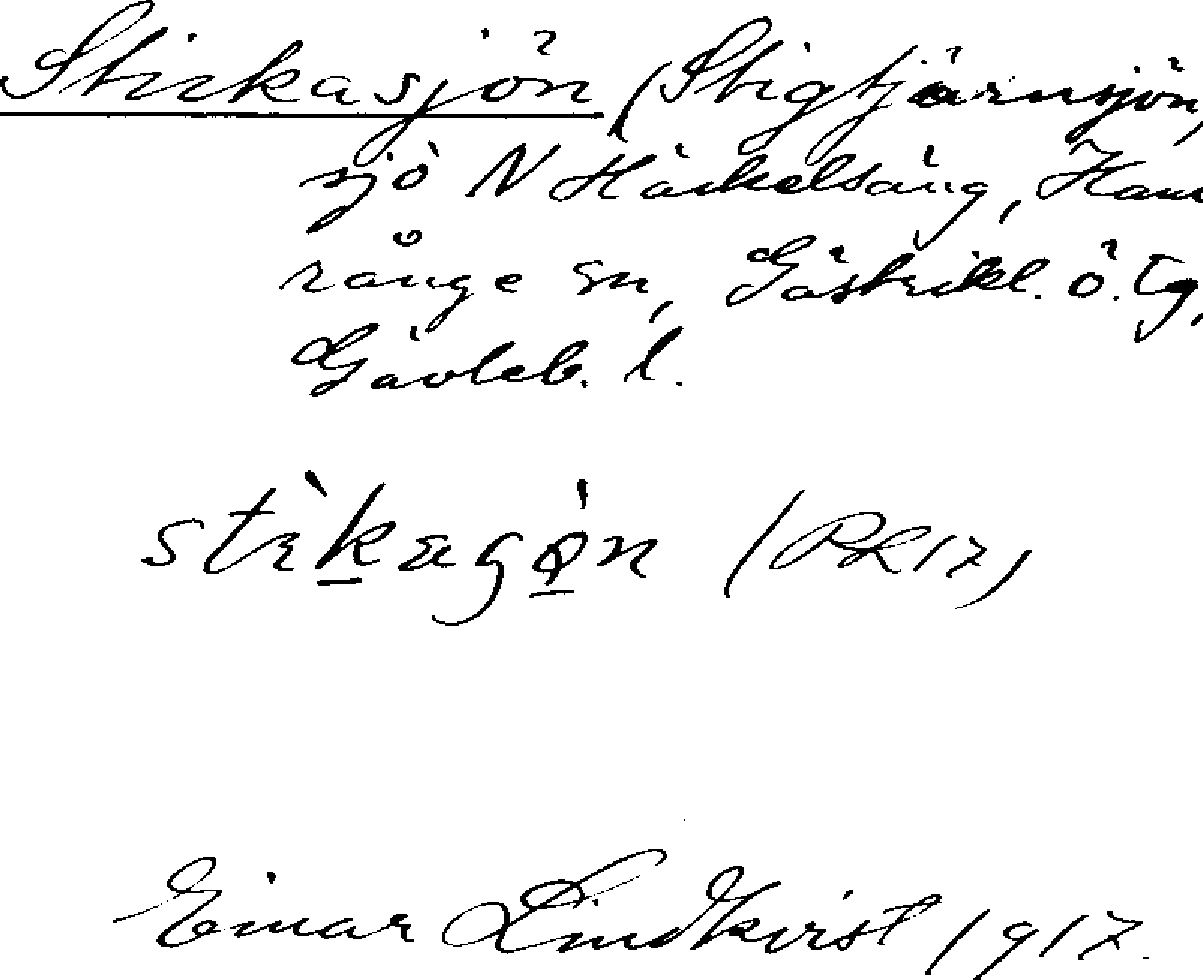 Stickasjön (Stigtjärnsjön,
sjö N Häckelsäng, Ham
rånge sn, Gästrikl. ö. tg,
Gävleb. l.
(RR 17)
Einar Lindkvist 1917.